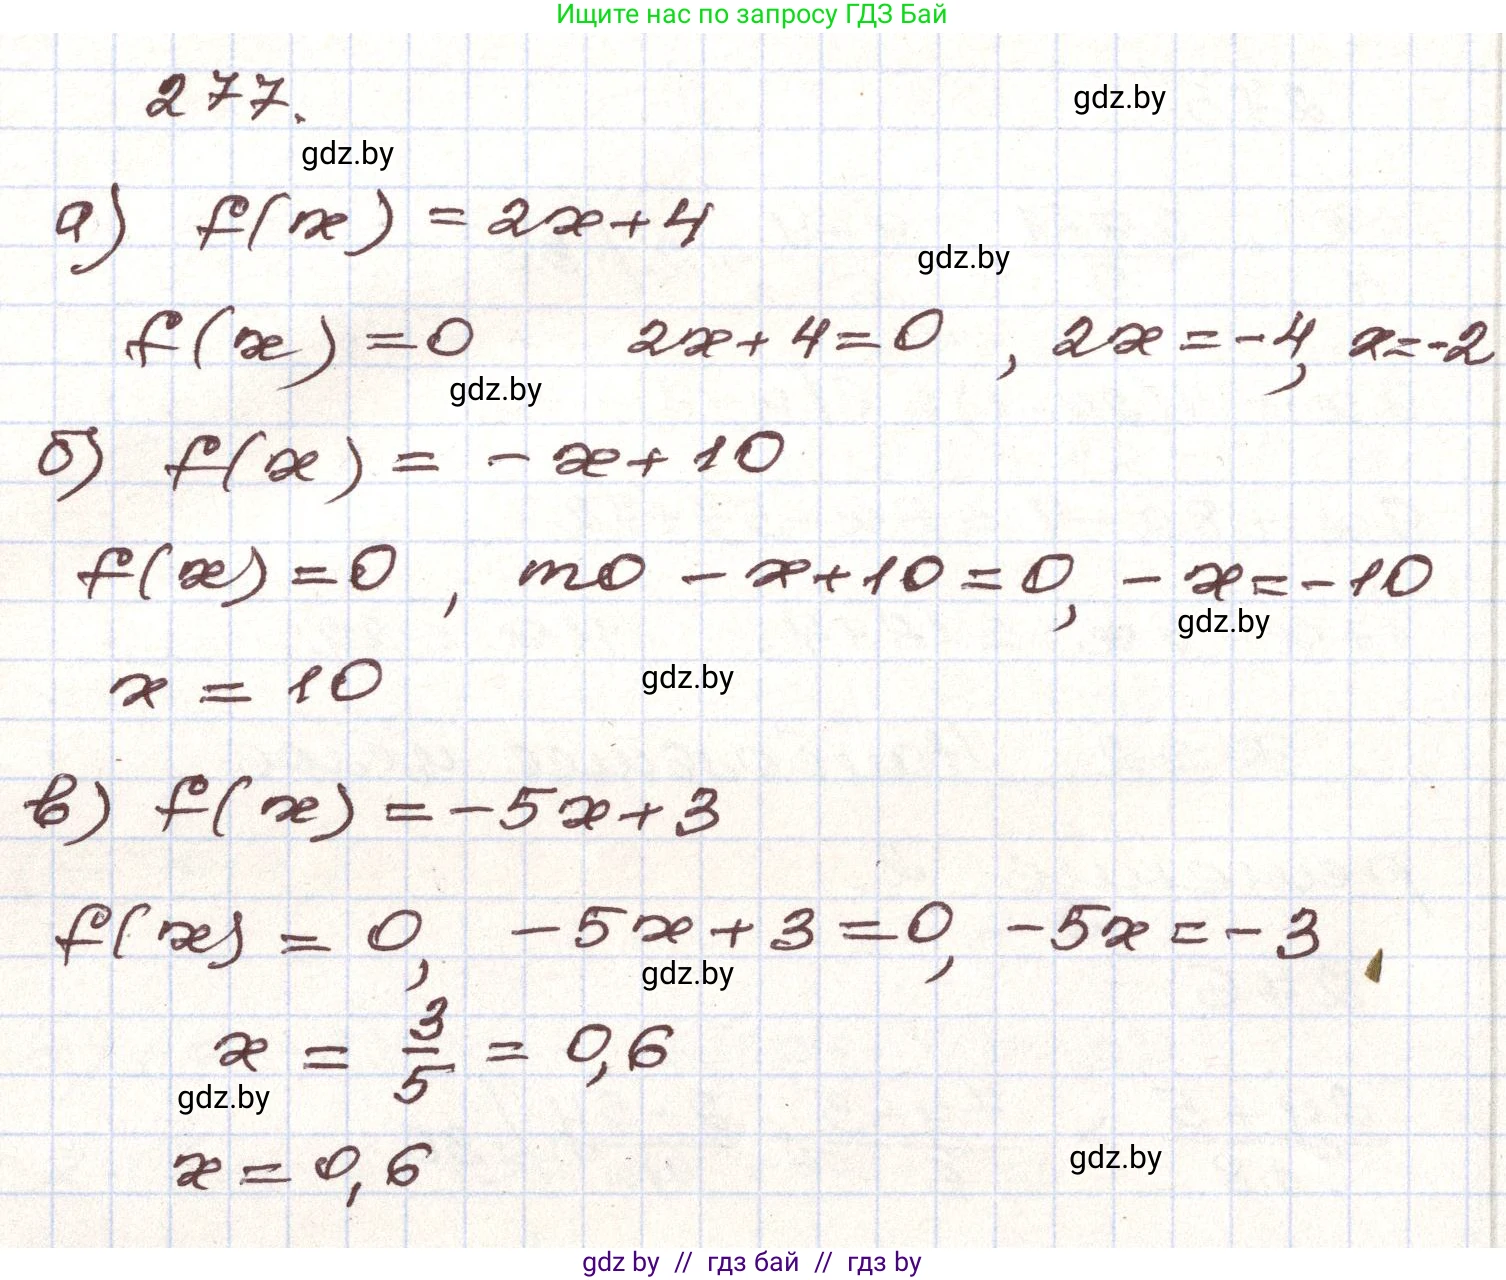 Ищите нас по запросу ГДЗ Бай
277.
gdz.by
gdz.by
а) f(x) = 2x+4
gdz.by
f(x)=0 2x+4=0 , 2x=-4, x=-2
gdz.by
б) f(x) = -x+10
f(x)=0 , то -x+10=0, -x=-10
gdz.by
x = 10
gdz.by
в) f(x)=-5x+3
f(x) = 0, -5x+3=0, -5x=-3,
gdz.by
x = 3/5 = 0,6
gdz.by
x=0,6
gdz.by
gdz by // гдз бай // гдз by